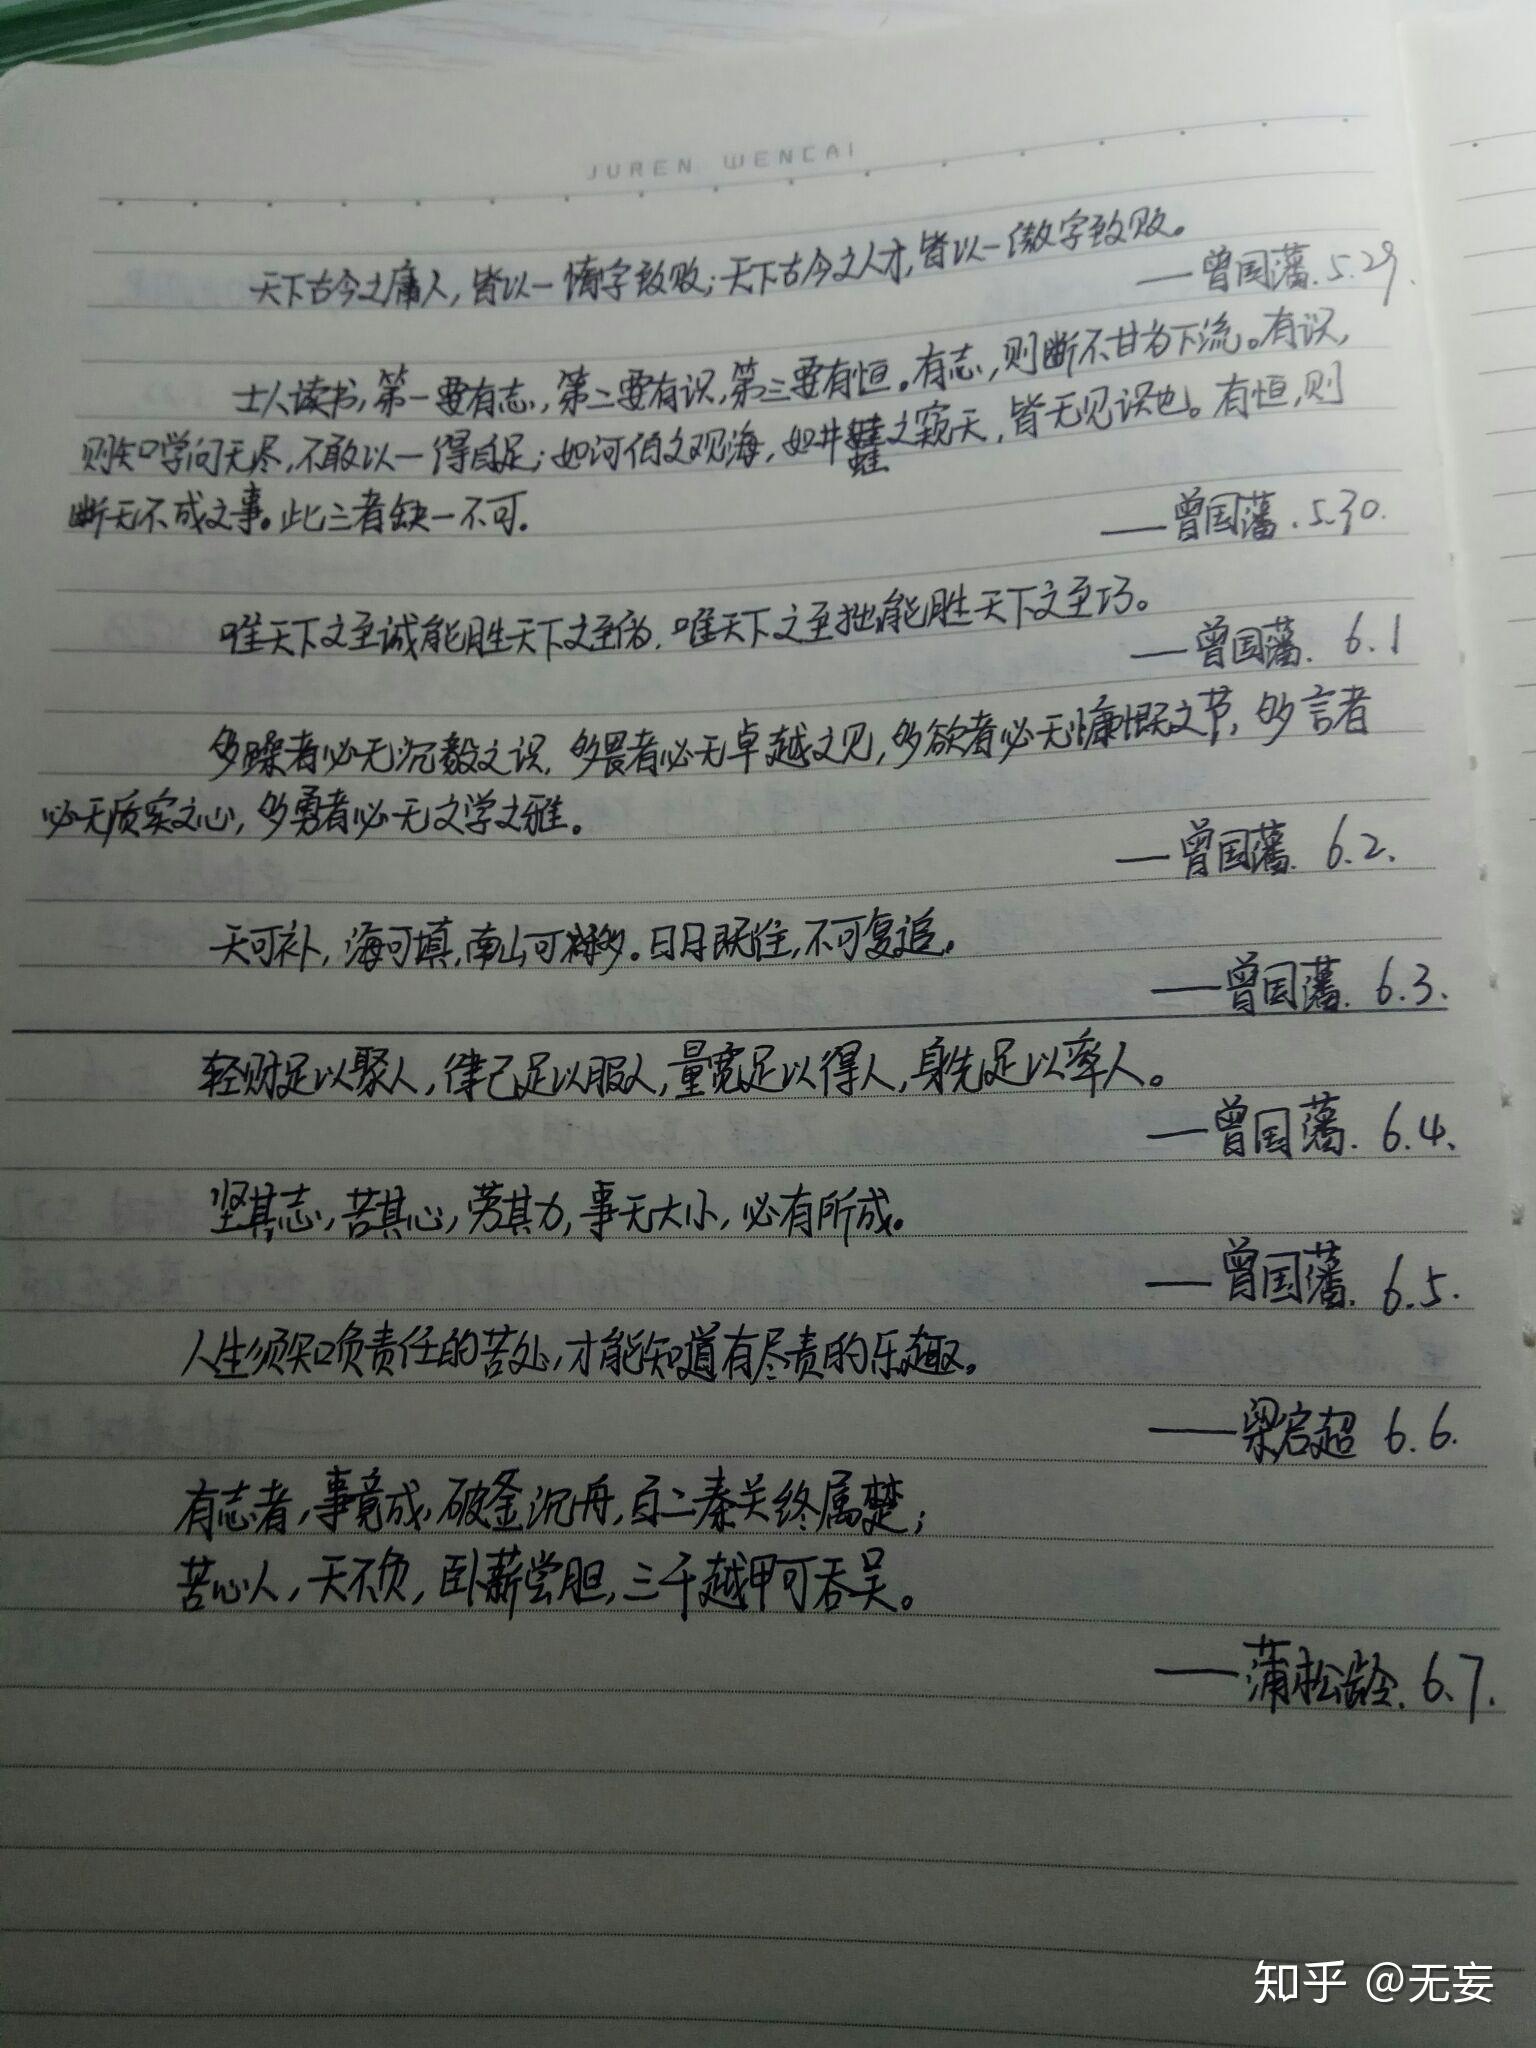 JUREN WENCAI
天下古今之庸人，皆以一惰字致败；天下古今之人才，皆以一傲字致败。
——曾国藩.5.29.
士人读书，第一要有志，第二要有识，第三要有恒。有志，则断不甘为下流。有识，
则知学问无尽，不敢以一得自足；如河伯之观海，如井蛙之窥天，皆无见识也。有恒，则
断无不成之事。此三者缺一不可。
——曾国藩.5.30.
唯天下之至诚能胜天下之至伪，唯天下之至拙能胜天下之至巧。
——曾国藩. 6.1
多躁者必无沉毅之识，多畏者必无卓越之见，多欲者必无慷慨之节，多言者
必无质实之心，多勇者必无文学之雅。
——曾国藩. 6.2.
天可补，海可填，南山可移。日月既往，不可复追。
——曾国藩. 6.3.
轻财足以聚人，律己足以服人，量宽足以得人，身先足以率人。
——曾国藩. 6.4.
坚其志，苦其心，劳其力，事无大小，必有所成。
——曾国藩. 6.5.
人生须知负责任的苦处，才能知道有尽责的乐趣。
——梁启超 6.6.
有志者，事竟成，破釜沉舟，百二秦关终属楚；
苦心人，天不负，卧薪尝胆，三千越甲可吞吴。
——蒲松龄. 6.7.
知乎 @无妄